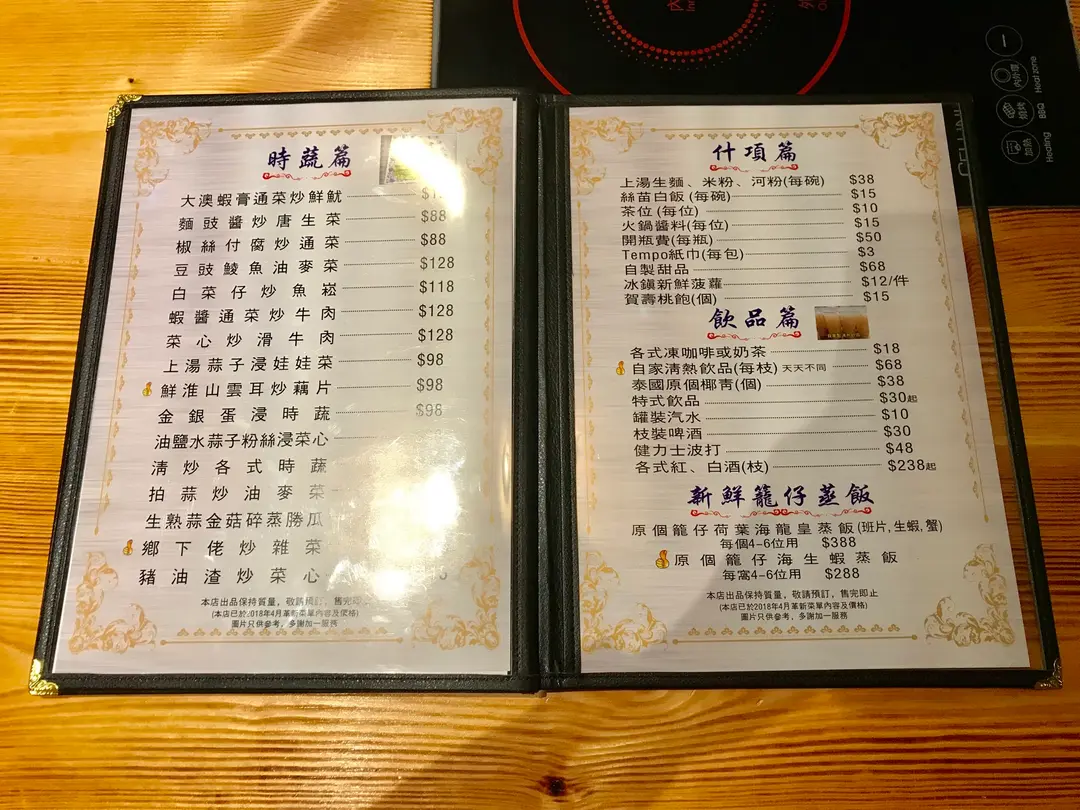 時蔬篇
大澳蝦膏通菜炒鮮魷
麵豉醬炒唐生菜 $88
椒絲付腐炒通菜 $88
豆豉鯪魚油麥菜 $128
白菜仔炒魚崧 $118
蝦醬通菜炒牛肉 $128
菜心炒滑牛肉 $128
上湯蒜子浸娃娃菜 $98
鮮淮山雲耳炒藕片 $98
金銀蛋浸時蔬 $98
油鹽水蒜子粉絲浸菜心
清炒各式時蔬
拍蒜炒油麥菜
生熟蒜金菇碎蒸勝瓜
鄉下佬炒雜菜
豬油渣炒菜心
本店出品保持質量，敬請預訂，售完即止
(本店已於2018年4月革新菜單內容及價格)
圖片只供參考，多謝加一服務
什項篇
上湯生麵、米粉、河粉(每碗) $38
絲苗白飯(每碗) $15
茶位(每位) $10
火鍋醬料(每位) $15
開瓶費(每瓶) $50
Tempo紙巾(每包) $3
自製甜品 $68
冰鎮新鮮菠蘿 $12/件
賀壽桃飽(個) $15
飲品篇
各式凍咖啡或奶茶 $18
自家清熱飲品(每枝)天天不同 $68
泰國原個椰青(個) $38
特式飲品 $30起
罐裝汽水 $10
枝裝啤酒 $30
健力士波打 $48
各式紅、白酒(枝) $238起
新鮮籠仔蒸飯
原個籠仔荷葉海龍皇蒸飯(班片,生蝦,蟹)
每個4-6位用 $388
原個籠仔海生蝦蒸飯
每窩4-6位用 $288
本店出品保持質量，敬請預訂，售完即止
(本店已於2018年4月革新菜單內容及價格)
圖片只供參考，多謝加一服務
內
Inn
外
內外環
Heat zone
燒烤
BBQ
加熱
Heating